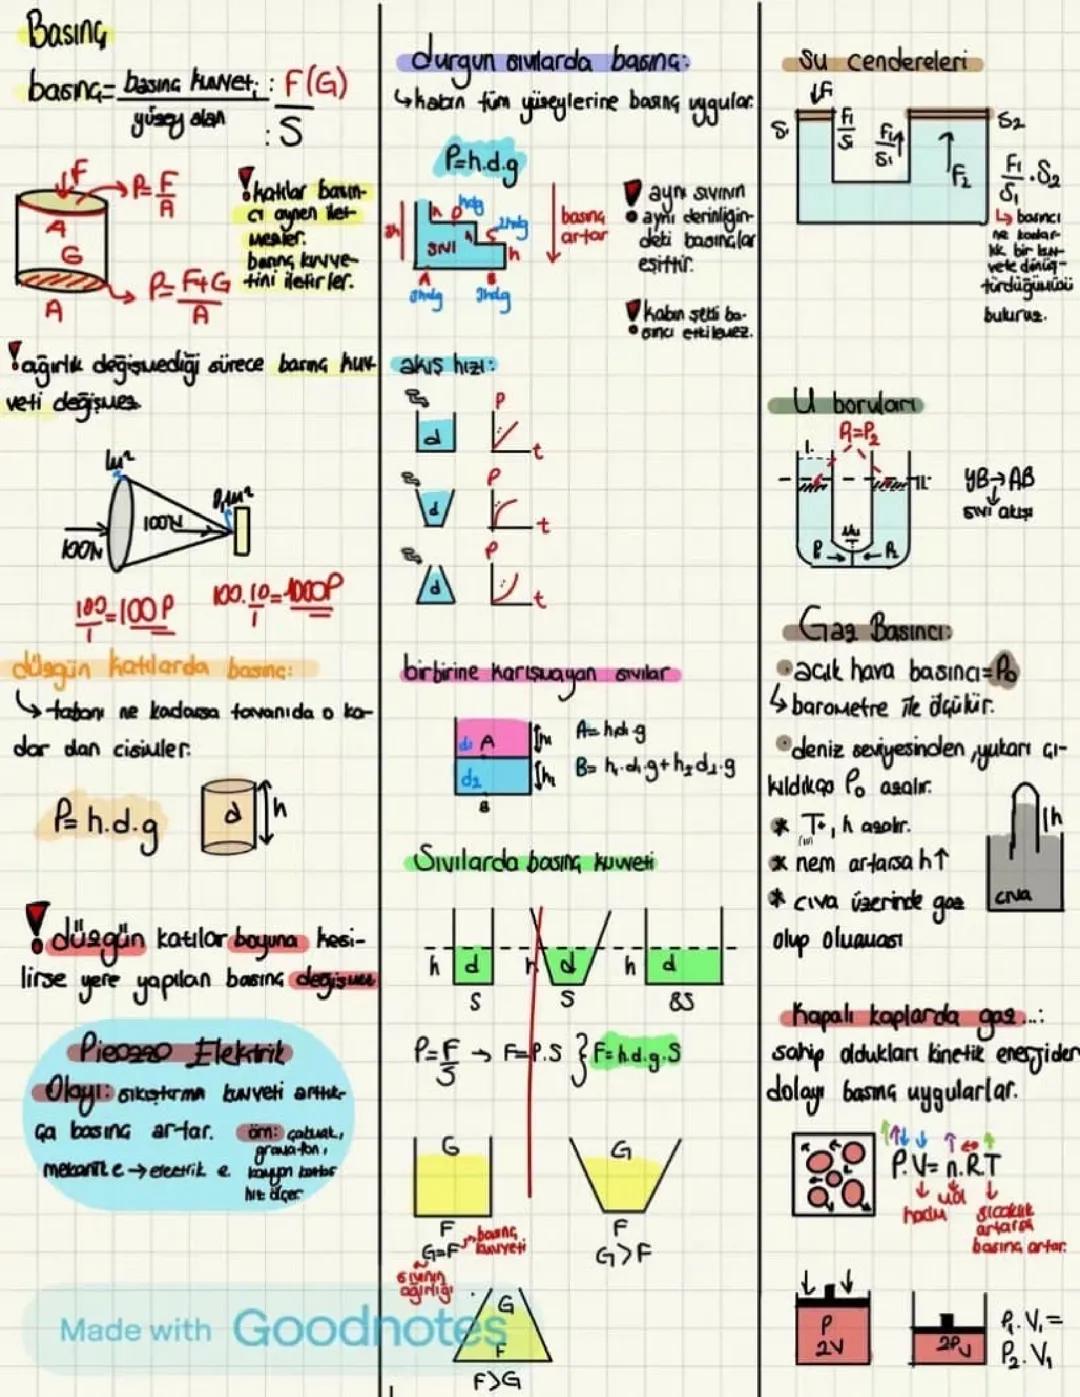 Basınç
basınç= basınç kuvveti : F(G)
yüzey alan : S
F
P= F/A
A
G
P= F+G/A
A
! katılar basın-
cı aynen ilet-
mezler.
basınç kuvve-
tini iletirler.
! ağırlık değişmediği sürece basınç kuv-
veti değişmez
1m²
0,1m²
100N
100N
100/1=100P
100.10/1=1000P
düzgün katılarda basınç:
↳ tabanı ne kadarsa tavanıda o ka-
dar olan cisimler.
P= h.d.g
d
h
! düzgün katılar boyuna kesi-
lirse yere yapılan basınç değişmez
Piezzo Elektrik
Olayı: sıkıştırma kuvveti arttık-
ça basınç artar. örn: çakmak,
gramafon,
mekanik e → electrik e.
hız ölçer
durgun sıvılarda basınç:
↳ kabın tüm yüzeylerine basınç uygular.
P=h.d.g
3h
h
D
hdg
SIVI
h
C
2hdg
h
A
B
3hdg
3hdg
basınç
artar
! aynı sıvının
aynı derinliğin-
deki basınçlar
eşittir.
! kabın şekli ba-
sıncı etkilemez.
akış hızı:
d
P
t
d
P
t
d
P
t
birbirine karışmayan sıvılar
d₁ A h₁
d₂ h₂
B
A= h₁.d₁.g
B= h₁.d₁.g+h₂.d₂.g
Sıvılarda basınç kuvveti
h d h d h d
S S 8S
P=F/S → F=P.S } F=h.d.g.S
G
F
G=F → basınç
kuvveti
sıvının
ağırlığı
G
F
G>F
G
F
F>G
su cendereleri
F₁
S₁
F₁/S₁
F₁/S₁
F₂
S₂
F₁/S₁.S₂
↳ basıncı
ne kadar-
lık bir kuv-
vete dönüş-
türdüğümüzü
buluruz.
U boruları
P₁=P₂
I.
II.
P → ← P₂
YB→AB
sıvı akışı
Gaz Basıncı:
• açık hava basıncı=P₀
↳ barometre ile ölçülür.
• deniz seviyesinden, yukarı çı-
kıldıkça P₀ azalır.
* T↑, h azalır.
* nem artarsa h↑
* cıva üzerinde gaz
olup olmaması
h
cıva
Kapalı kaplarda gaz...:
sahip oldukları kinetik enerjiden
dolayı basınç uygularlar.
P.V= n.R.T
hacim
mol
sıcaklık
artarsa
basınç artar.
P
2V
2P V
P₁.V₁=
P₂.V₁
Made with Goodnotes